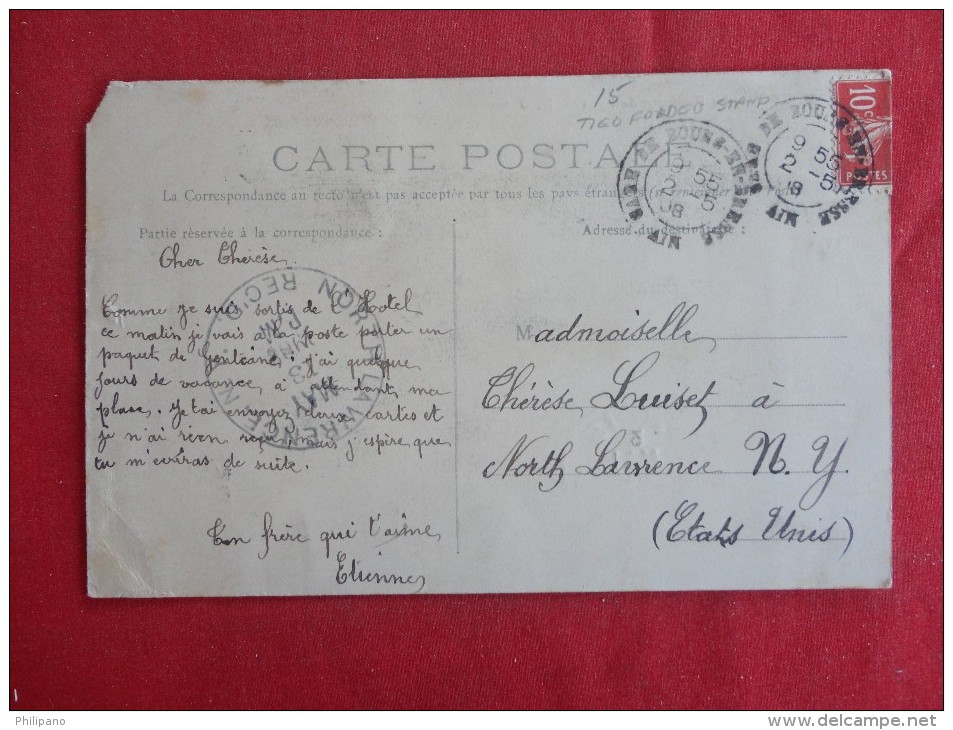 15
TIED FORDED STAMP
10c
POSTES
CARTE POSTALE
La Correspondance au recto n'est pas acceptée par tous les pays étrangers
Partie réservée à la correspondance :
Adresse du destinataire :
DE BOURG-EN-BRESSE
9 55
2 -5
08
DE BOURG-EN-BRESSE
9 55
2 -5
08
NORTH LAWRENCE N.
REC'D.
MAY
13
Cher Thérèse.
Comme je suis sortis de l'Hotel
ce matin je vais a la poste porter un
paquet de j'ai quelque
jours de vacance, a attendant ma
place. Je t'ai envoyez deux cartes et
je n'ai rien reçu, mais j'espère que
tu m'ecriras de suite.
Ton frère qui t'aime
Etienne
Madmoiselle
Thérèse Luiset à
North Lawrence N. Y.
(Etats Unis)
Philipano
www.delcampe.net